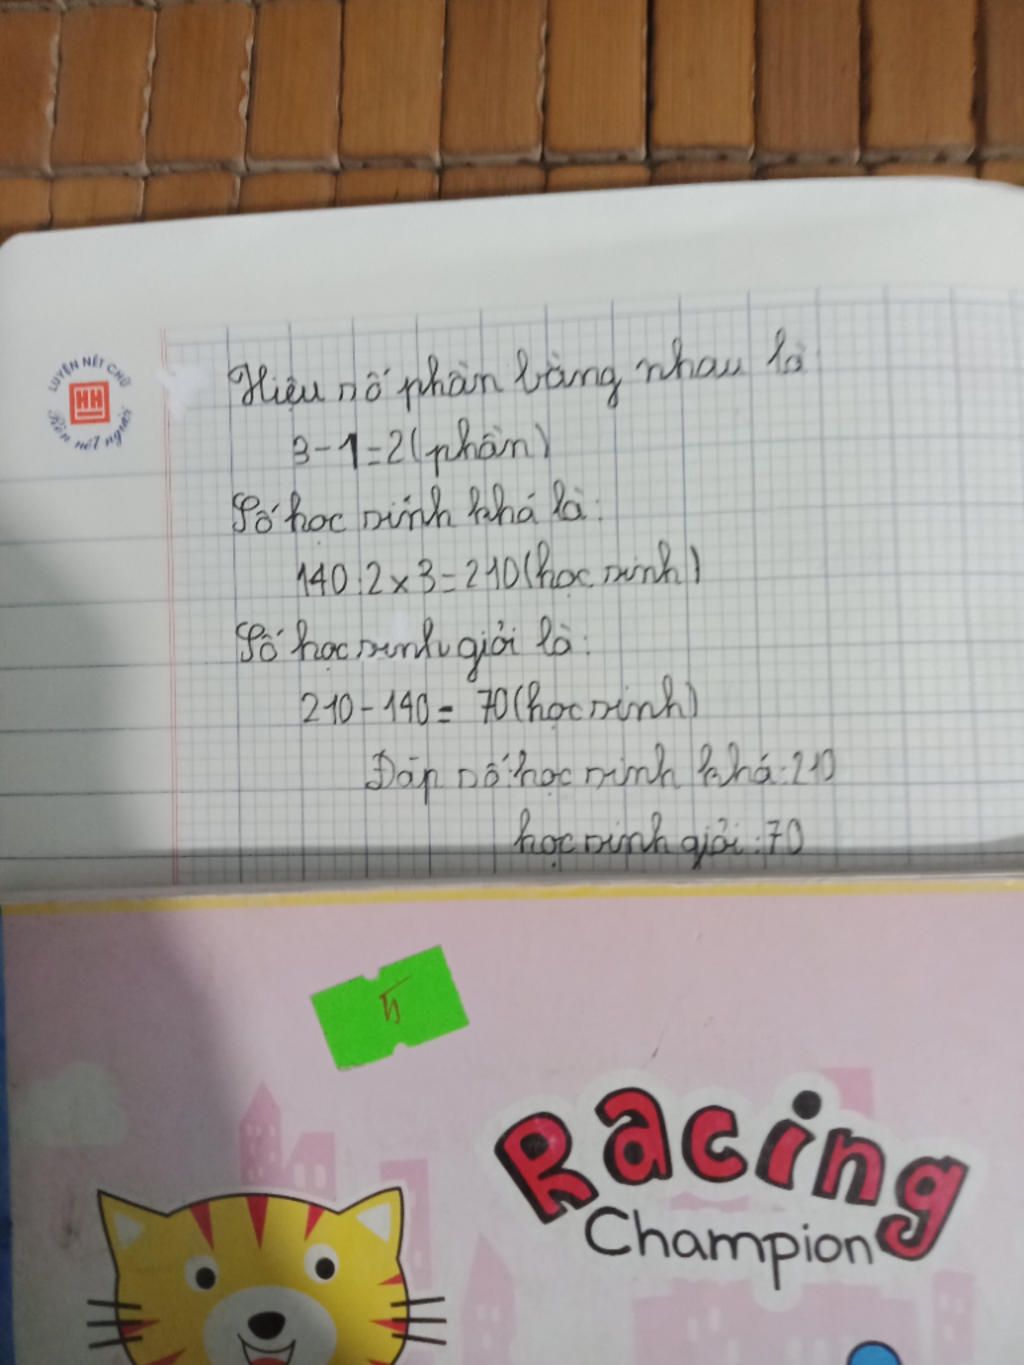 LUYỆN NÉT CHỮ
HH
Rèn nết người
Hiệu số phần bằng nhau là
3-1=2(phần)
Số học sinh khá là:
140:2x3=210(học sinh)
Số học sinh giỏi là:
210-140= 70(học sinh)
Đáp số: học sinh khá:210
học sinh giỏi:70
Racing
Champion